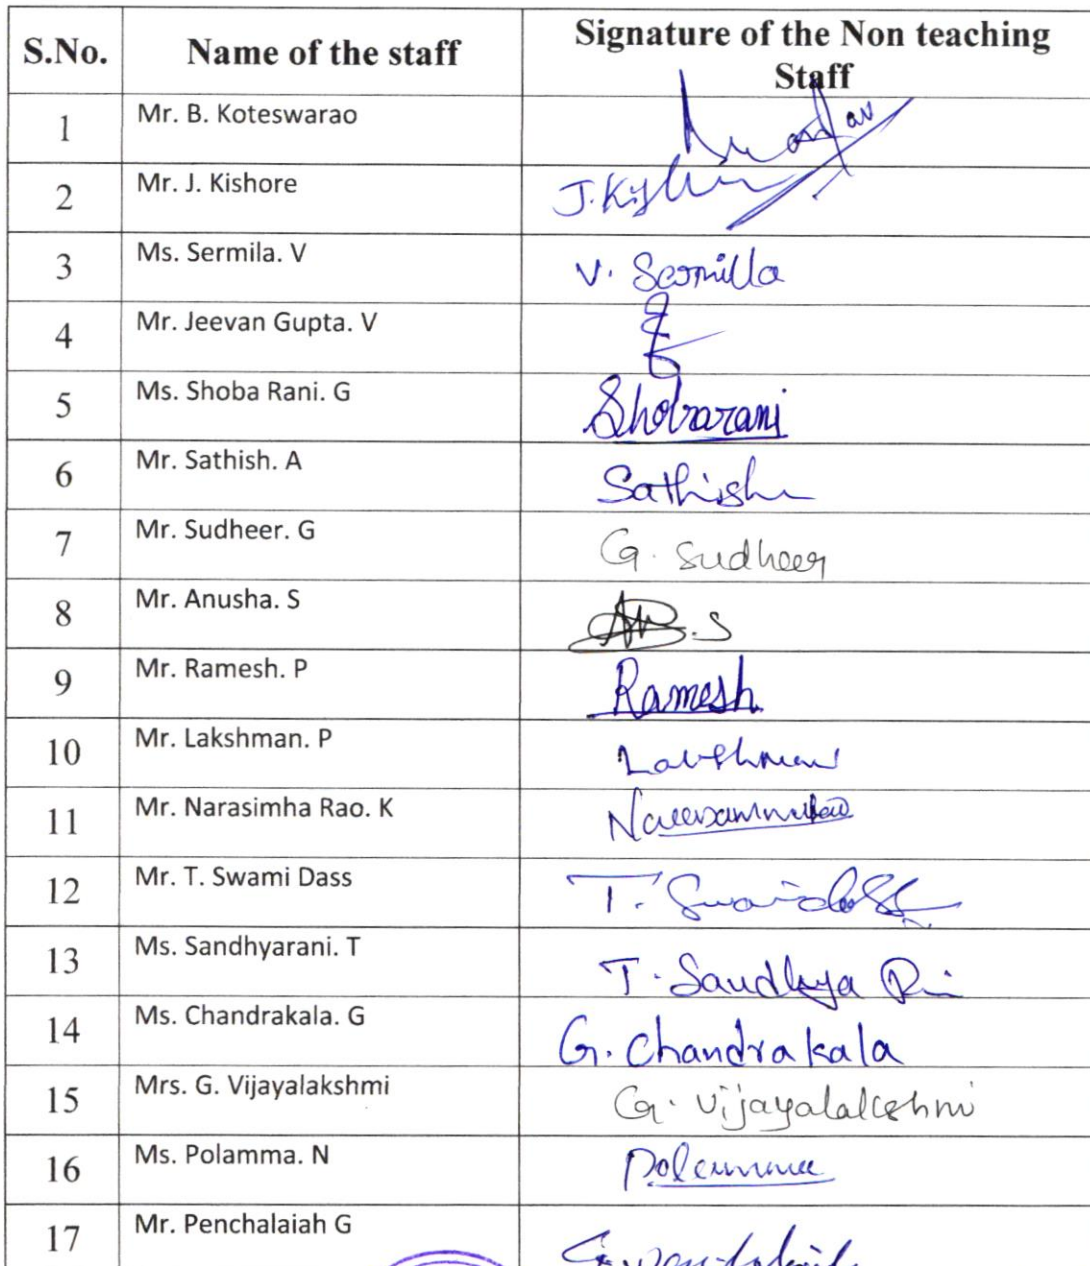 S.No. Name of the staff Signature of the Non teaching
Staff
1 Mr. B. Koteswarao
2 Mr. J. Kishore J. Kishore
3 Ms. Sermila. V V. Sermilla
4 Mr. Jeevan Gupta. V
5 Ms. Shoba Rani. G Shobarani
6 Mr. Sathish. A Sathish
7 Mr. Sudheer. G G. Sudheer
8 Mr. Anusha. S
9 Mr. Ramesh. P Ramesh
10 Mr. Lakshman. P Lakshman
11 Mr. Narasimha Rao. K
12 Mr. T. Swami Dass T. Swamidass
13 Ms. Sandhyarani. T T. Sandhya
14 Ms. Chandrakala. G G. Chandrakala
15 Mrs. G. Vijayalakshmi G. Vijayalakshmi
16 Ms. Polamma. N Polamma
17 Mr. Penchalaiah G